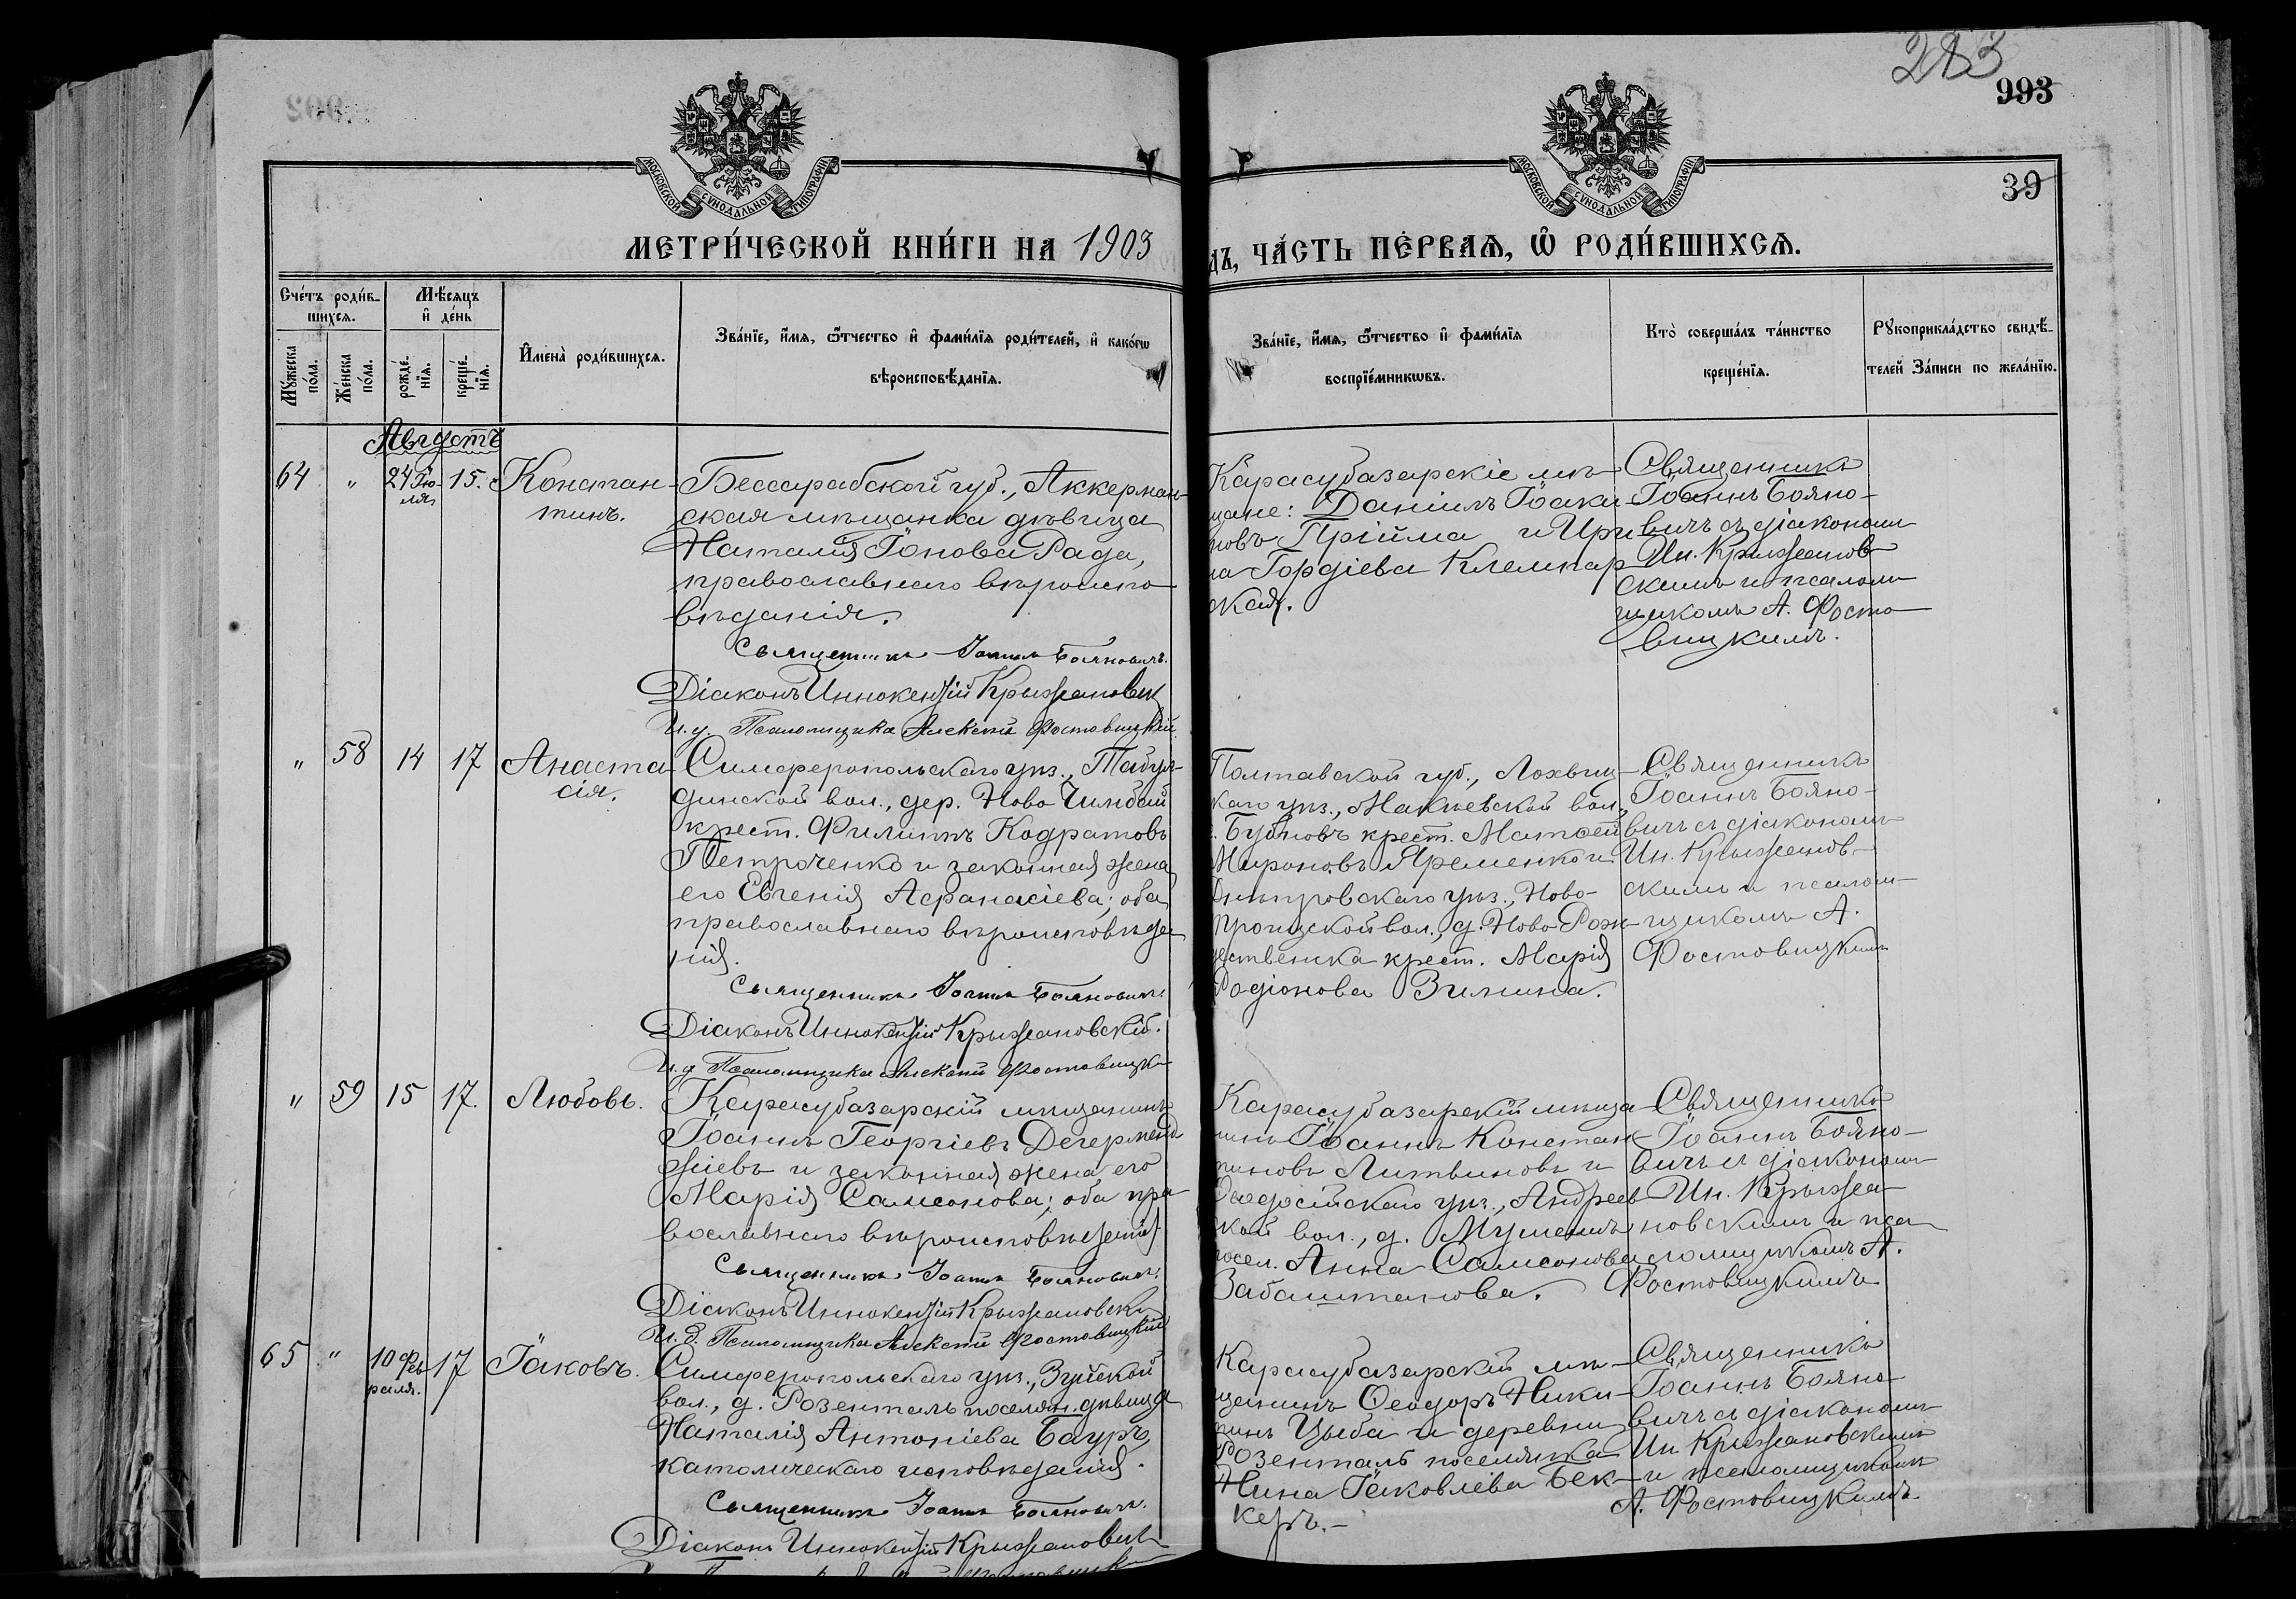 283
993
39
МОСКОВСКОЙ СУНОДАЛЬНОЙ ТИПОГРАФІИ
МОСКОВСКОЙ СУНОДАЛЬНОЙ ТИПОГРАФІИ
МЕТРИ́ЧЕСКОЙ КНИ́ГИ НА 1903
ДЪ, ЧА́СТЬ ПЕ́РВАѦ, Ѿ РОДИ́ВШИХСѦ.
Сче́тъ роди́в-
шихсѧ.
Мѣ́сѧцъ
и҆ де́нь
Мꙋ́жеска
по́ла.
Же́нска
по́ла.
рожде́-
нїѧ.
креще́-
нїѧ.
И҆мена̀ роди́вшихсѧ.
Зва́нїе, и҆́мѧ, ѻ҆́тчество и҆ фами́лїѧ роди́телей, и҆ како́гѡ
вѣроисповѣ́данїѧ.
Зва́нїе, и҆́мѧ, ѻ҆́тчество и҆ фами́лїѧ
воспрїе́мникѡвъ.
Кто̀ соверша́лъ та́инство
креще́нїѧ.
Рꙋкоприкла́дство свидѣ́-
телей За́писи по жела́нїю.
Августъ
64 " 24 Iю- 15. Констан-
ля
тинъ.
Бессарабской губ., Аккерман-
ская мѣщанка дѣвица
Наталія Іонова Рада,
православнаго вѣроиспо-
вѣданія.
Священникъ Іоаннъ Бояновичъ.
Діаконъ Иннокентій Крыжановск
И. д. Псаломщика Алексѣй Фостовицкій.
Карасубазарскіе мѣ-
щане: Даніилъ Іоаки-
мовъ Прійма и Ири-
на Гордіева Клемпар-
ская.
Священникъ
Іоаннъ Бояно-
вичъ съ діакономъ
Ин. Крыжанов-
скимъ и псалом-
щикомъ А. Фосто-
вицкимъ.
" 58 14 17 Анаста-
сія.
Симферопольскаго уѣз., Табул-
динской вол., дер. Ново Чимбай
крест. Филиппъ Кодратовъ
Петроченко и законная жена
его Евгенія Афанасіева; оба
православнаго вѣроисповѣда-
нія.
Священникъ Іоаннъ Бояновичъ
Діаконъ Иннокентій Крыжановскій.
И. д. Псаломщика Алексѣй Фостовицкі
Полтавской губ., Лохвиц-
каго уѣз., Макѣевской вол.,
с. Бубновъ крест. Матвѣй
Мироновъ Яременко и
Днѣпровскаго уѣз., Ново-
троицкой вол., д. Ново Рож-
дественка крест. Марія
Родіонова Зимина.
Священникъ
Іоаннъ Бояно-
вичъ съ діакономъ
Ин. Крыжанов-
скимъ и псалом-
щикомъ А.
Фостовицкимъ
" 59 15 17. Любовь.
Карасубазарскій мѣщанинъ
Іоаннъ Георгіевъ Дегерменд-
жіевъ и законная жена его
Марія Самсонова; оба пра-
вославнаго вѣроисповѣданія.
Священникъ Іоаннъ Бояновичъ.
Діаконъ Иннокентій Крыжановскі
И. д. Псаломщика Алексѣй Фостовицкій
Карасубазарскій мѣща-
нинъ Іоаннъ Констан-
тиновъ Литвиновъ и
Ѳеодосійскаго уѣз., Андреев-
ской вол., д.
посел. Анна Самсонова
Забаштанова.
Священникъ
Іоаннъ Бояно-
вичъ съ діакономъ
Ин. Крыжа-
новскимъ и пса-
ломщикомъ А.
Фостовицкимъ
65 " 10 Фев- 17 Іаковъ.
раля.
Симферопольскаго уѣз., Зуйской
вол., д. Розенталь поселян. дѣвица
Наталія Антоніева Бауръ,
католическаго исповѣданія.
Священникъ Іоаннъ Бояновичъ.
Діаконъ Иннокентій Крыжановскі
Карасубазарскій мѣ-
щанинъ Ѳеодоръ Ники-
тинъ Цыба и деревни
Розенталь поселянка
Нина Іаковлева Бек-
керъ.-
Священникъ
Іоаннъ Бояно-
вичъ съ діакономъ
Ин. Крыжановскимъ
и псаломщикомъ
А. Фостовицкимъ.